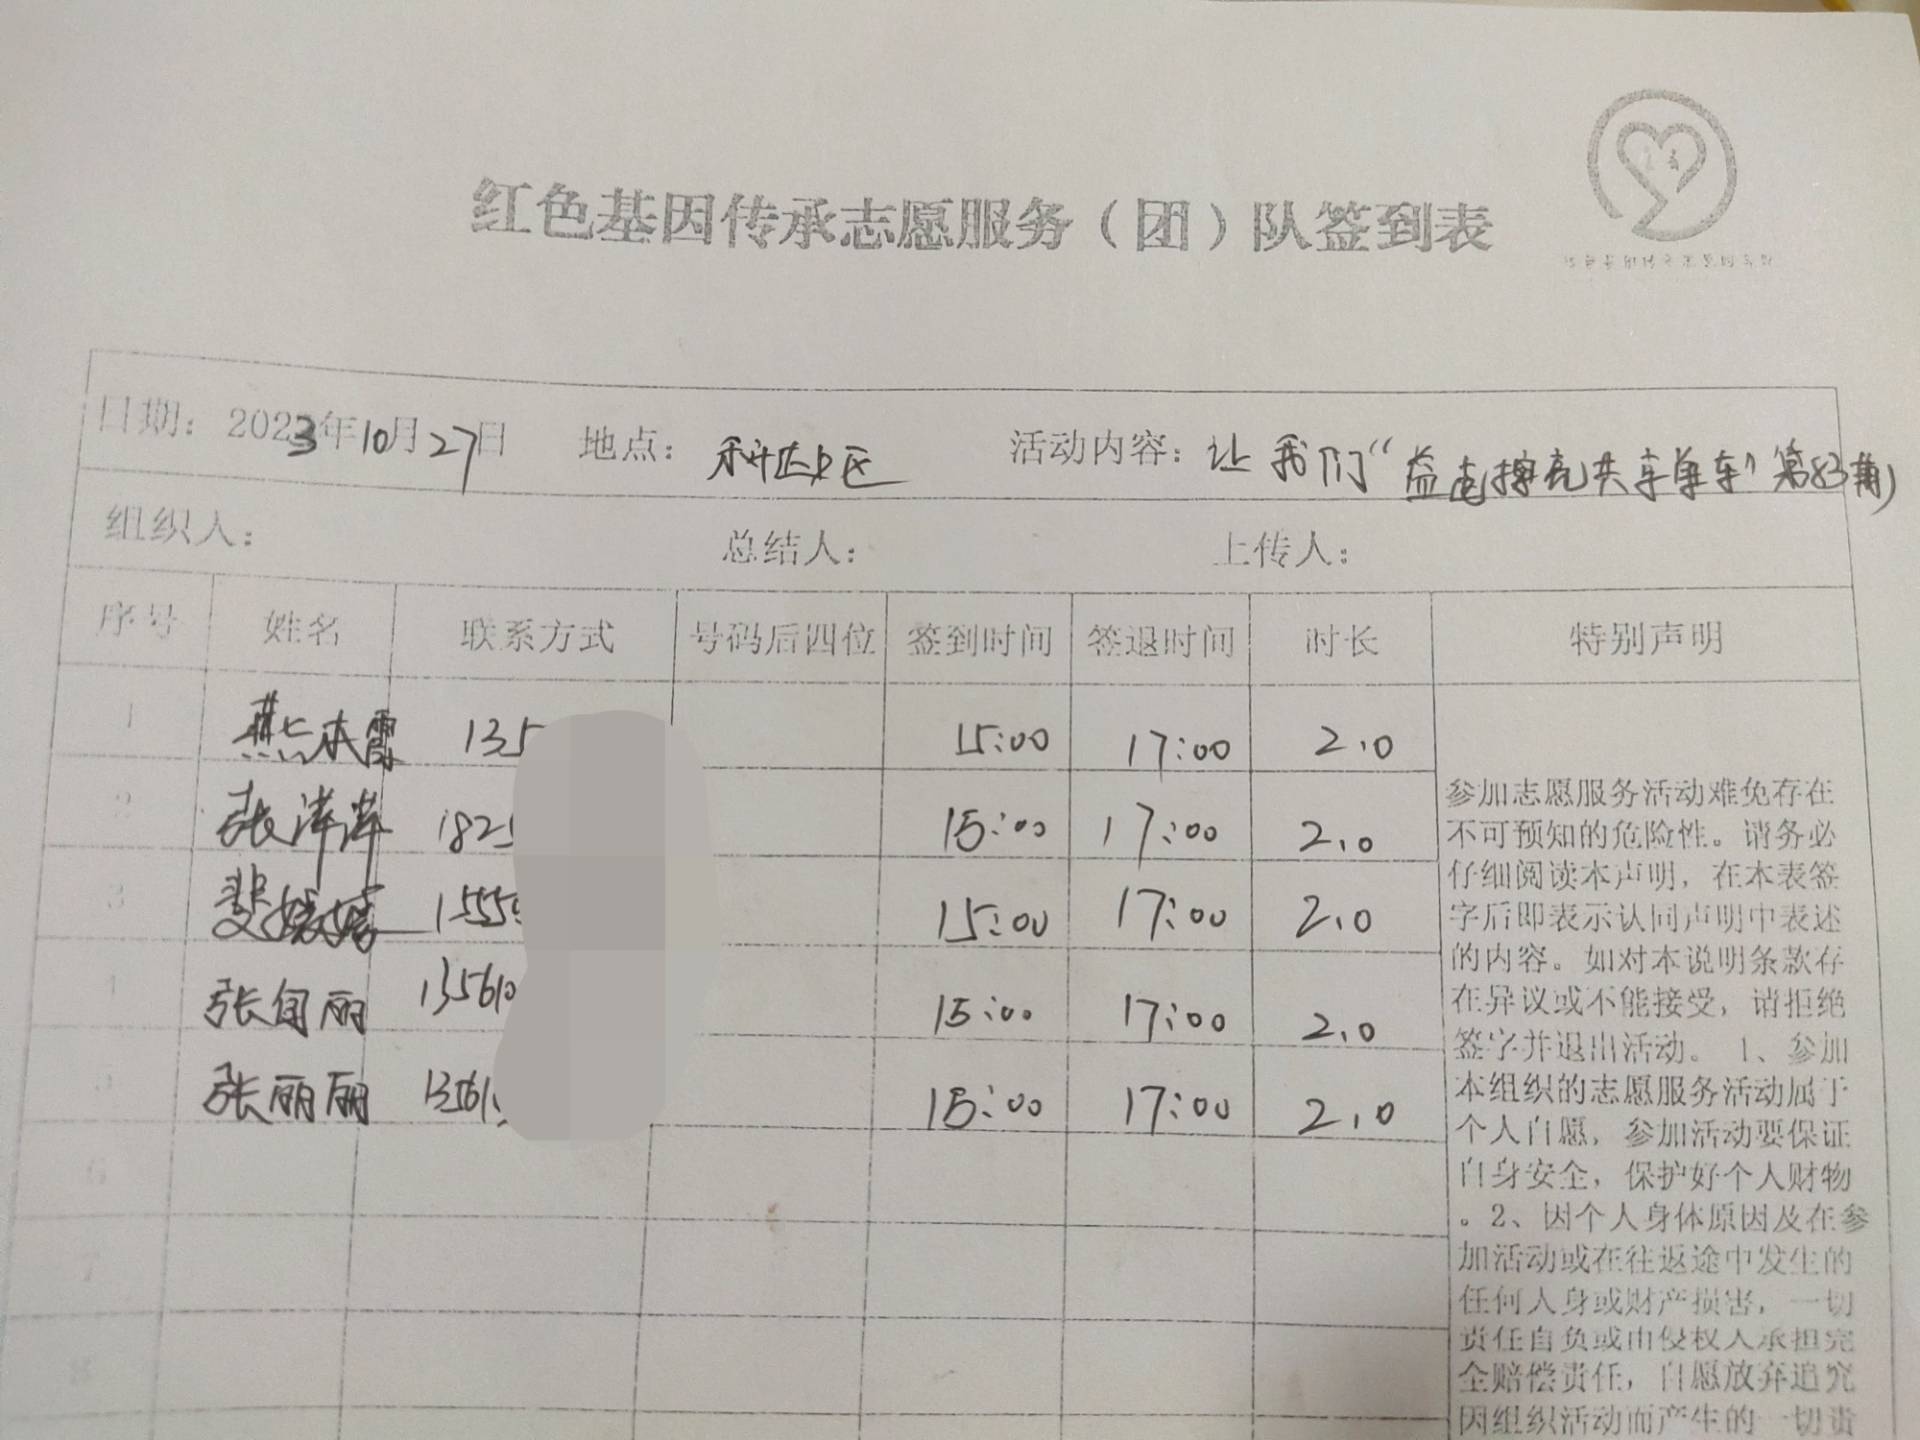 红色基因传承志愿服务（团）队签到表
日期：2023年10月27日 地点： 活动内容：让我们“益起擦亮共享单车”第83期
组织人： 总结人： 上传人：
序号 姓名 联系方式 号码后四位 签到时间 签退时间 时长 特别声明
1 燕本霞 135 15:00 17:00 2.0
2 张萍萍 182 15:00 17:00 2.0
3 1555 15:00 17:00 2.0
4 张自丽 135610 15:00 17:00 2.0
5 张丽丽 13561 15:00 17:00 2.0
6
7
8
参加志愿服务活动难免存在
不可预知的危险性。请务必
仔细阅读本声明，在本表签
字后即表示认同声明中表述
的内容。如对本说明条款存
在异议或不能接受，请拒绝
签字并退出活动。 1、参加
本组织的志愿服务活动属于
个人自愿，参加活动要保证
自身安全，保护好个人财物
。2、因个人身体原因及在参
加活动或在往返途中发生的
任何人身或财产损害，一切
责任自负或由侵权人承担完
全赔偿责任，自愿放弃追究
因组织活动而产生的一切责